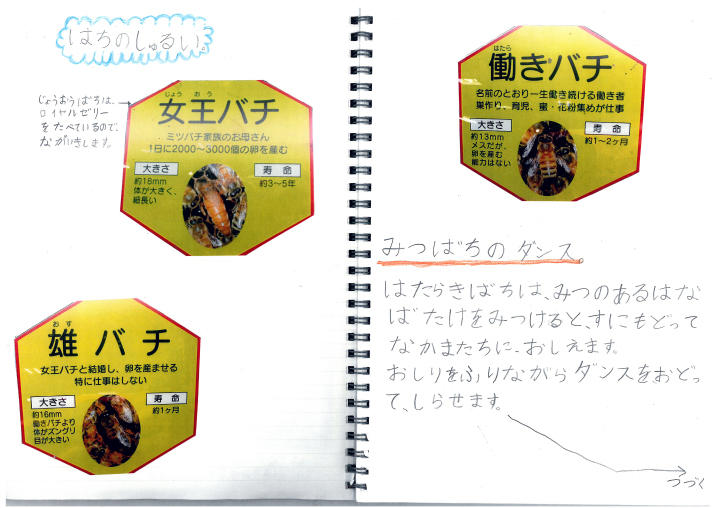 はちのしゅるい。
じょうおうばちは、
ロイヤルゼリー
をたべているので、
ながいきします。
じょう おう
女王バチ
ミツバチ家族のお母さん
1日に2000〜3000個の卵を産む
大きさ
約18mm
体が大きく、
細長い
寿命
約3〜5年
おす
雄バチ
女王バチと結婚し、卵を産ませる
特に仕事はしない
大きさ
約16mm
働きバチより
体がズングリ
目が大きい
寿命
約1ヶ月
はたら
働きバチ
名前のとおり一生働き続ける働き者
巣作り、育児、蜜・花粉集めが仕事
大きさ
約13mm
メスだが、
卵を産む
能力はない
寿命
約1〜2ヶ月
みつばちのダンス。
はたらきばちは、みつのあるはな
ばたけをみつけると、すにもどって
なかまたちに、おしえます。
おしりをふりながらダンスをおどっ
て、しらせます。
つづく